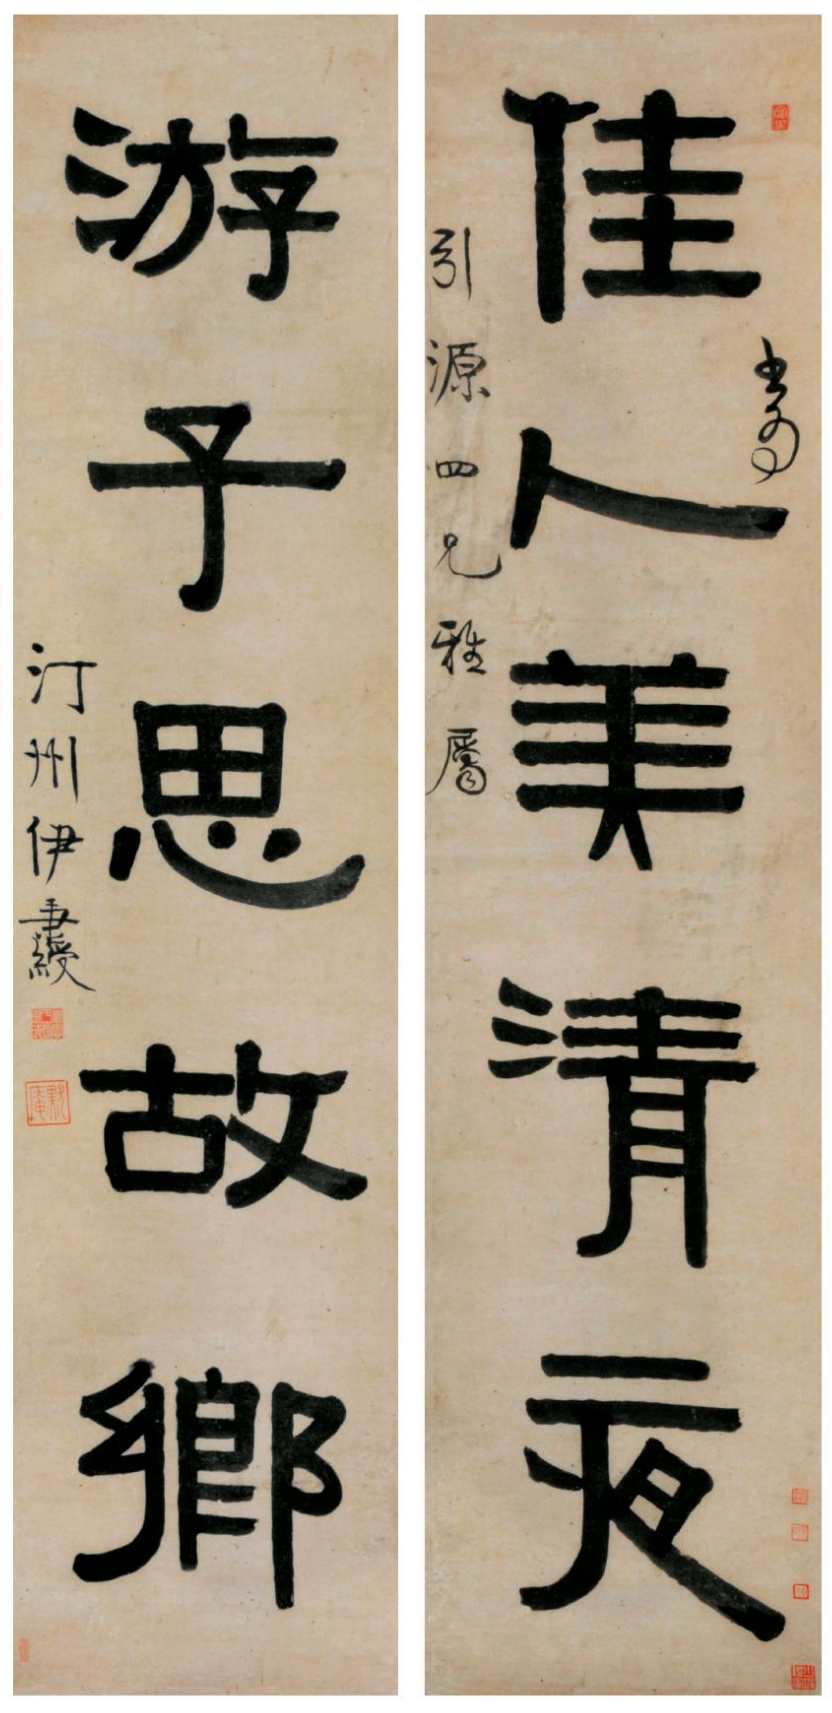 佳人美清夜
引源四兄雅屬
游子思故鄉
汀州伊秉綬
默庵